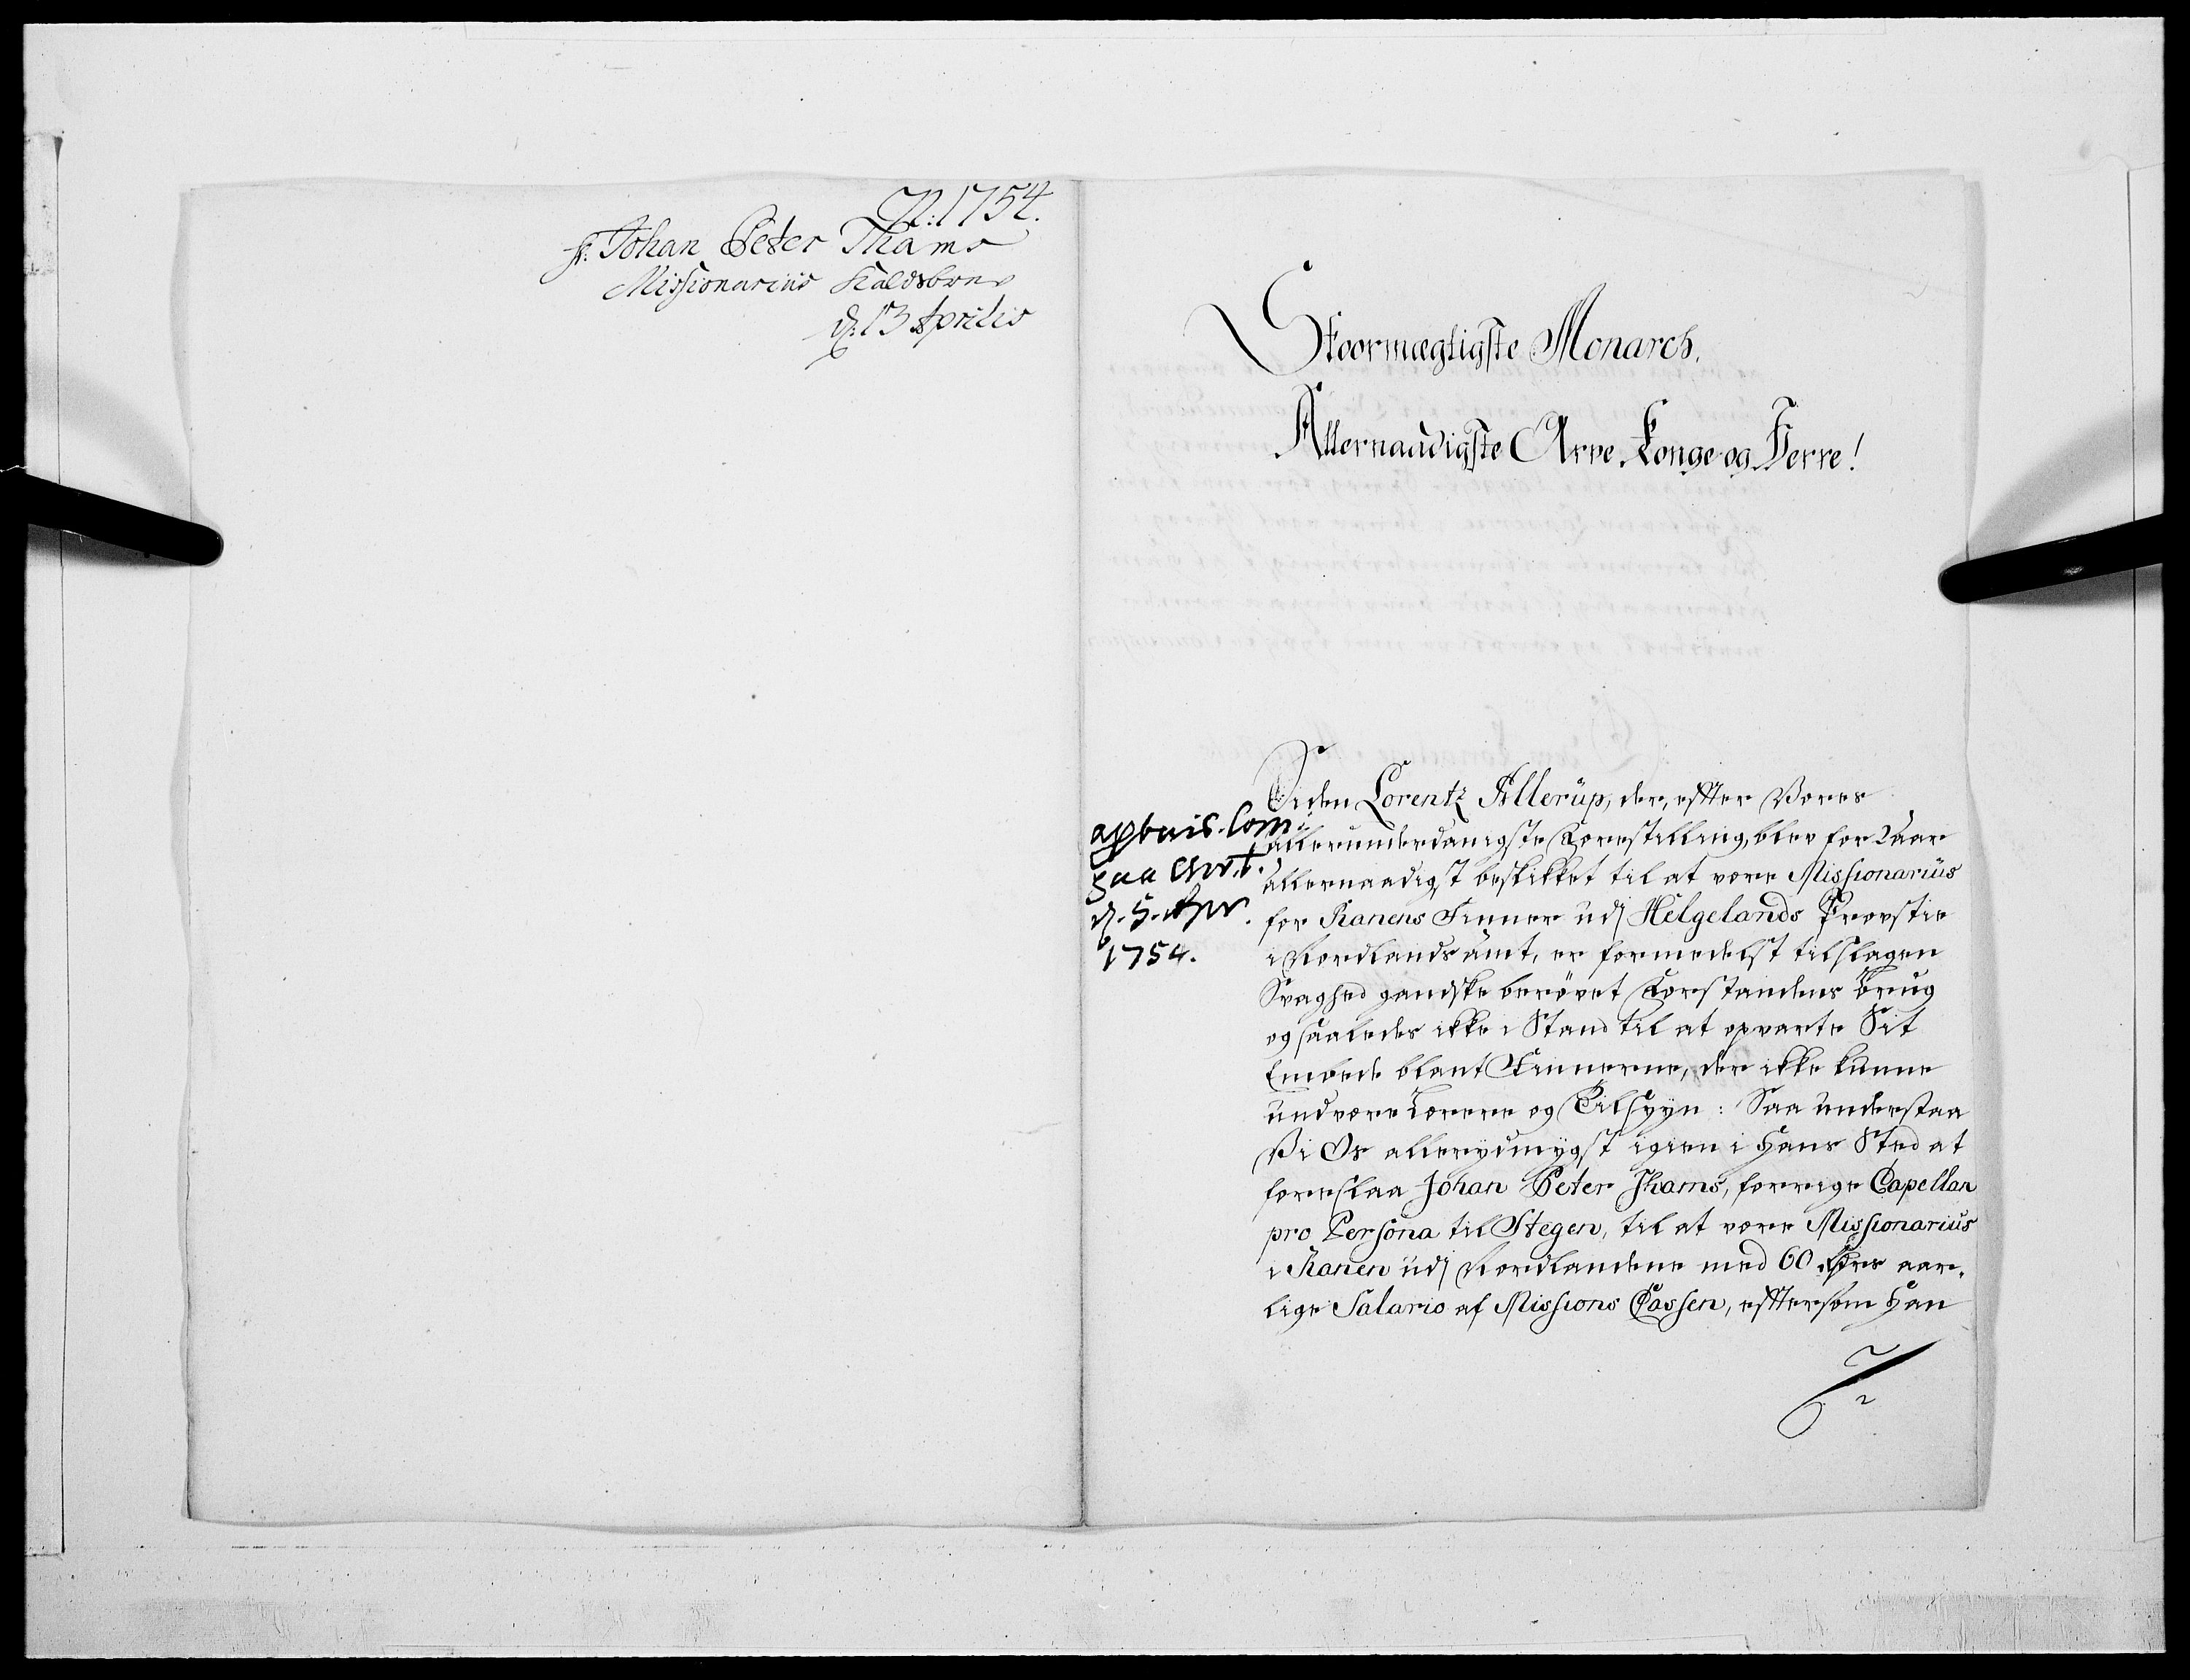 N: 1754.
hr: Johan Peter Thams
Missionariüs Kaldsbrev
d: 13 Aprilis
Stoormægtigste Monarch.
Allernaadigste Arve Konge og Herre!
d. 5. Apr.
1754.
Siden Lorentz Allerüp, der, effter Vores
allerunderdanigste Forestilling, blev for 2 aar
allernaadigst beskikket til at være Missionariüs
for Ranens Finner udj Helgelands Provstie
i Nordlands amt, er formedelst tilslagen
Svaghed gandske berövet Forstandens brug
og saaledes ikke i Stand til at opvarte Sit
Embede blant Finnerne, der ikke kunne
undvære Lærere og Tilsyyn: Saa understaa
Vi Os allerydmygst igien i Hans Sted at
foreslaa Johan Peter Thams, forrige Capellan
pro Persona til Stegen, til at være Missionariüs
i Ranen udj Nordlandene med 60 rdrs aar-
lige Salario af Missions Cassen, effter som Han